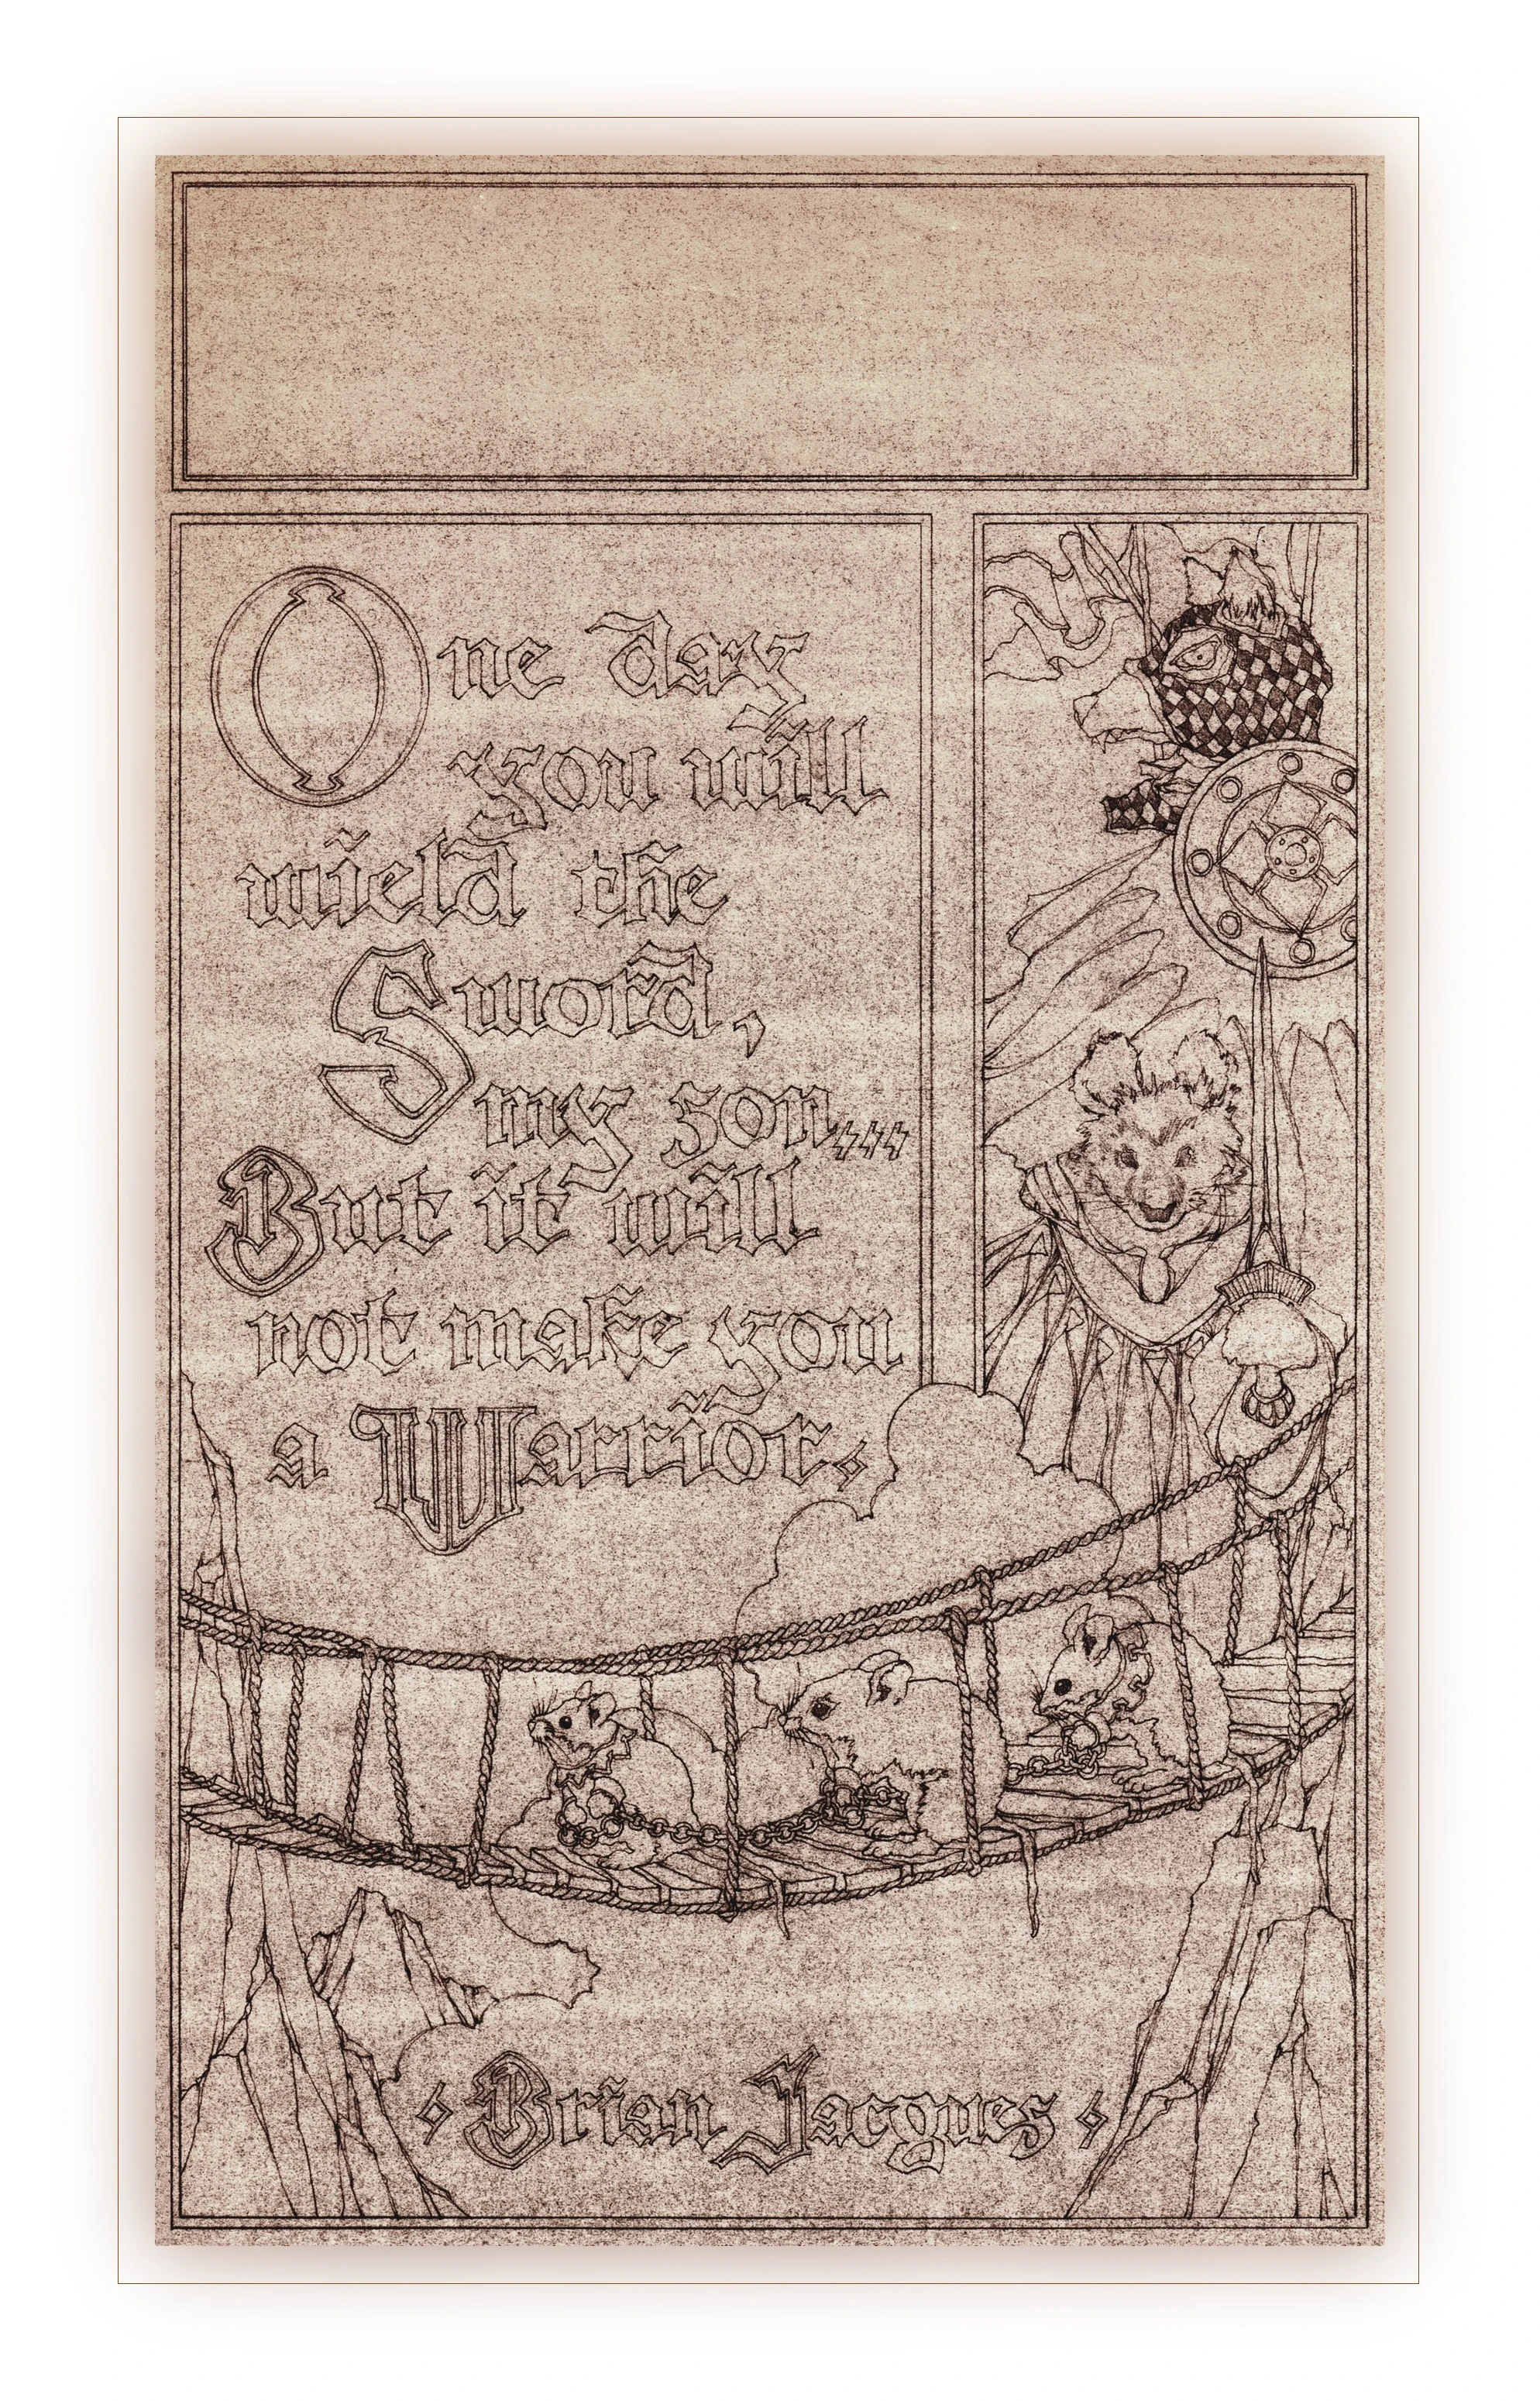 One day
you will
wield the
Sword,
my son...
But it will
not make you
a Warrior.
Brian Jacques